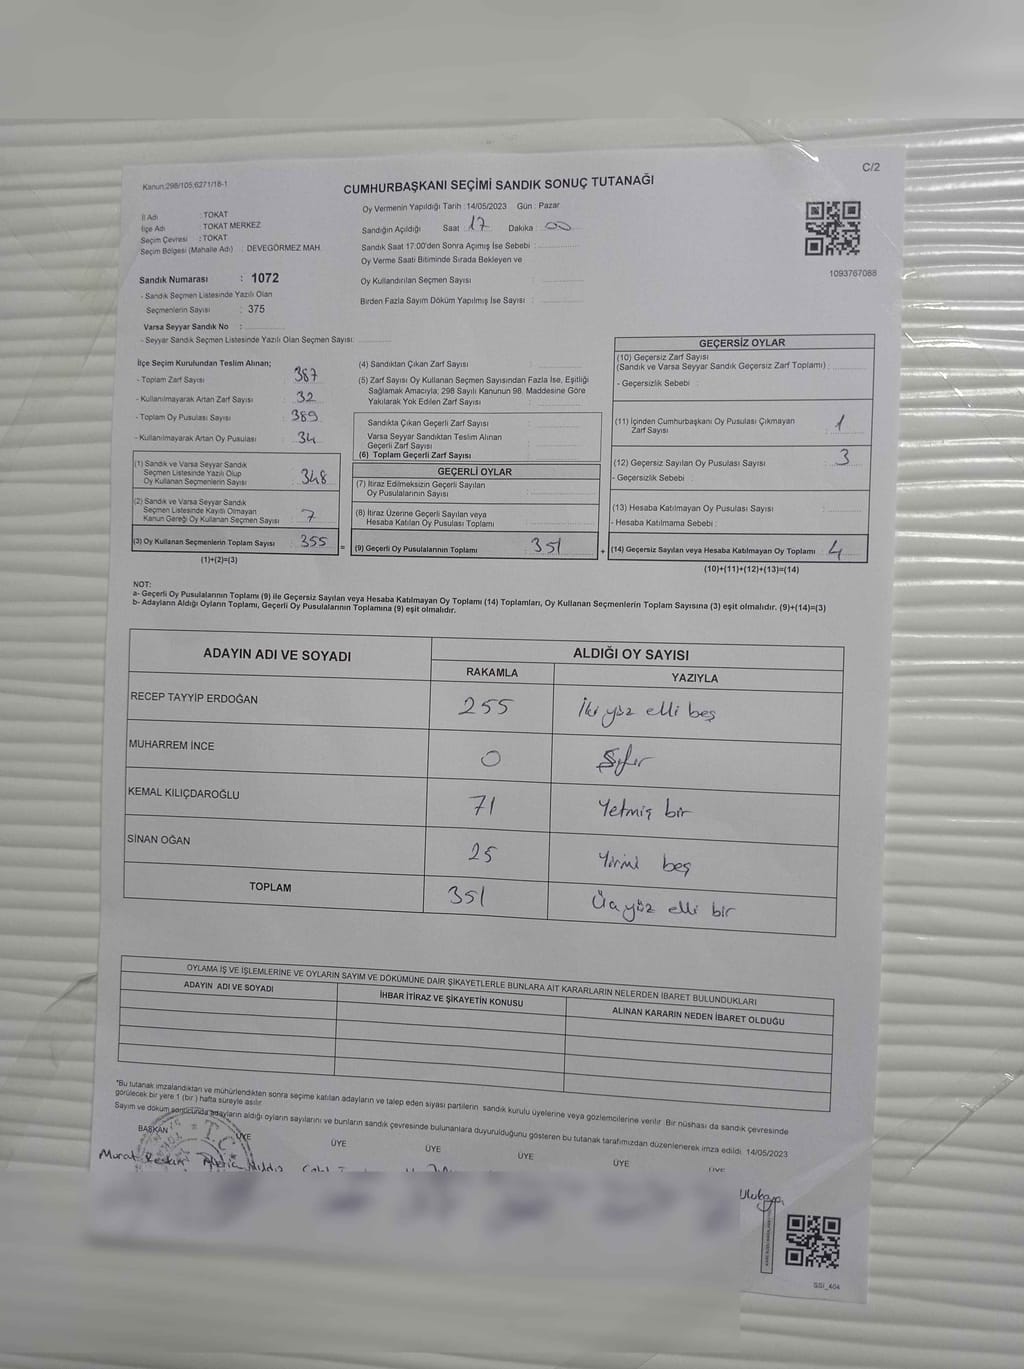 C/2
Kanun:298/105,6271/18-1
CUMHURBAŞKANI SEÇİMİ SANDIK SONUÇ TUTANAĞI
İl Adı : TOKAT
İlçe Adı : TOKAT MERKEZ
Seçim Çevresi : TOKAT
Seçim Bölgesi (Mahalle Adı) : DEVEGÖRMEZ MAH.
Oy Vermenin Yapıldığı Tarih :14/05/2023 Gün : Pazar
Sandığın Açıldığı Saat 17 Dakika : 00
Sandık Saat 17:00'den Sonra Açımış İse Sebebi :
Oy Verme Saati Bitiminde Sırada Bekleyen ve
Oy Kullandırılan Seçmen Sayısı :
Birden Fazla Sayım Döküm Yapılmış İse Sayısı :
1093767088
Sandık Numarası : 1072
- Sandık Seçmen Listesinde Yazılı Olan
Seçmenlerin Sayısı : 375
Varsa Seyyar Sandık No :
- Seyyar Sandık Seçmen Listesinde Yazılı Olan Seçmen Sayısı:
İlçe Seçim Kurulundan Teslim Alınan;
- Toplam Zarf Sayısı : 387
- Kullanılmayarak Artan Zarf Sayısı : 32
- Toplam Oy Pusulası Sayısı : 389
- Kullanılmayarak Artan Oy Pusulası : 34
(1) Sandık ve Varsa Seyyar Sandık
Seçmen Listesinde Yazılı Olup
Oy Kullanan Seçmenlerin Sayısı : 348
(2) Sandık ve Varsa Seyyar Sandık
Seçmen Listesinde Kayıtlı Olmayan
Kanun Gereği Oy Kullanan Seçmen Sayısı : 7
(3) Oy Kullanan Seçmenlerin Toplam Sayısı : 355
(1)+(2)=(3)
(4) Sandıktan Çıkan Zarf Sayısı :
(5) Zarf Sayısı Oy Kullanan Seçmen Sayısından Fazla İse, Eşitliği
Sağlamak Amacıyla, 298 Sayılı Kanunun 98. Maddesine Göre
Yakılarak Yok Edilen Zarf Sayısı :
Sandıkta Çıkan Geçerli Zarf Sayısı :
Varsa Seyyar Sandıktan Teslim Alınan
Geçerli Zarf Sayısı :
(6) Toplam Geçerli Zarf Sayısı :
GEÇERLİ OYLAR
(7) İtiraz Edilmeksizin Geçerli Sayılan
Oy Pusulalarının Sayısı :
(8) İtiraz Üzerine Geçerli Sayılan veya
Hesaba Katılan Oy Pusulası Toplamı :
= (9) Geçerli Oy Pusulalarının Toplamı : 351
GEÇERSİZ OYLAR
(10) Geçersiz Zarf Sayısı
(Sandık ve Varsa Seyyar Sandık Geçersiz Zarf Toplamı) :
- Geçersizlik Sebebi :
(11) İçinden Cumhurbaşkanı Oy Pusulası Çıkmayan
Zarf Sayısı : 1
(12) Geçersiz Sayılan Oy Pusulası Sayısı : 3
- Geçersizlik Sebebi :
(13) Hesaba Katılmayan Oy Pusulası Sayısı :
- Hesaba Katılmama Sebebi :
+ (14) Geçersiz Sayılan veya Hesaba Katılmayan Oy Toplamı : 4
(10)+(11)+(12)+(13)=(14)
NOT:
a- Geçerli Oy Pusulalarının Toplamı (9) ile Geçersiz Sayılan veya Hesaba Katılmayan Oy Toplamı (14) Toplamları, Oy Kullanan Seçmenlerin Toplam Sayısına (3) eşit olmalıdır. (9)+(14)=(3)
b- Adayların Aldığı Oyların Toplamı, Geçerli Oy Pusulalarının Toplamına (9) eşit olmalıdır.
ADAYIN ADI VE SOYADI
ALDIĞI OY SAYISI
RAKAMLA YAZIYLA
RECEP TAYYİP ERDOĞAN 255 İki yüz elli beş
MUHARREM İNCE 0 Sıfır
KEMAL KILIÇDAROĞLU 71 Yetmiş bir
SİNAN OĞAN 25 Yirmi beş
TOPLAM 351 Üç yüz elli bir
OYLAMA İŞ VE İŞLEMLERİNE VE OYLARIN SAYIM VE DÖKÜMÜNE DAİR ŞİKAYETLERLE BUNLARA AİT KARARLARIN NELERDEN İBARET BULUNDUKLARI
ADAYIN ADI VE SOYADI İHBAR İTİRAZ VE ŞİKAYETİN KONUSU ALINAN KARARIN NEDEN İBARET OLDUĞU
*Bu tutanak imzalandıktan ve mühürlendikten sonra seçime katılan adayların ve talep eden siyasi partilerin sandık kurulu üyelerine veya gözlemcilerine verilir. Bir nüshası da sandık çevresinde
görülecek bir yere 1 (bir) hafta süreyle asılır.
Sayım ve döküm sonucunda adayların aldığı oyların sayılarını ve bunların sandık çevresinde bulunanlara duyurulduğunu gösteren bu tutanak tarafımızdan düzenlenerek imza edildi. 14/05/2023
BAŞKAN ÜYE ÜYE ÜYE ÜYE ÜYE ÜYE
T.C.
Murat
SSI_404